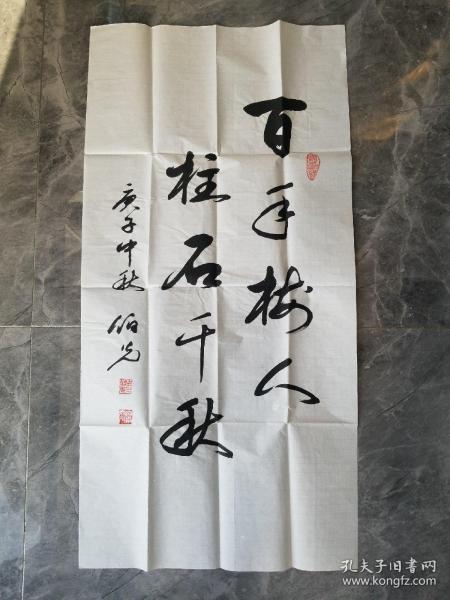 百年树人
柱石千秋
庚子中秋 伯光
孔夫子旧书网
www.kongfz.com